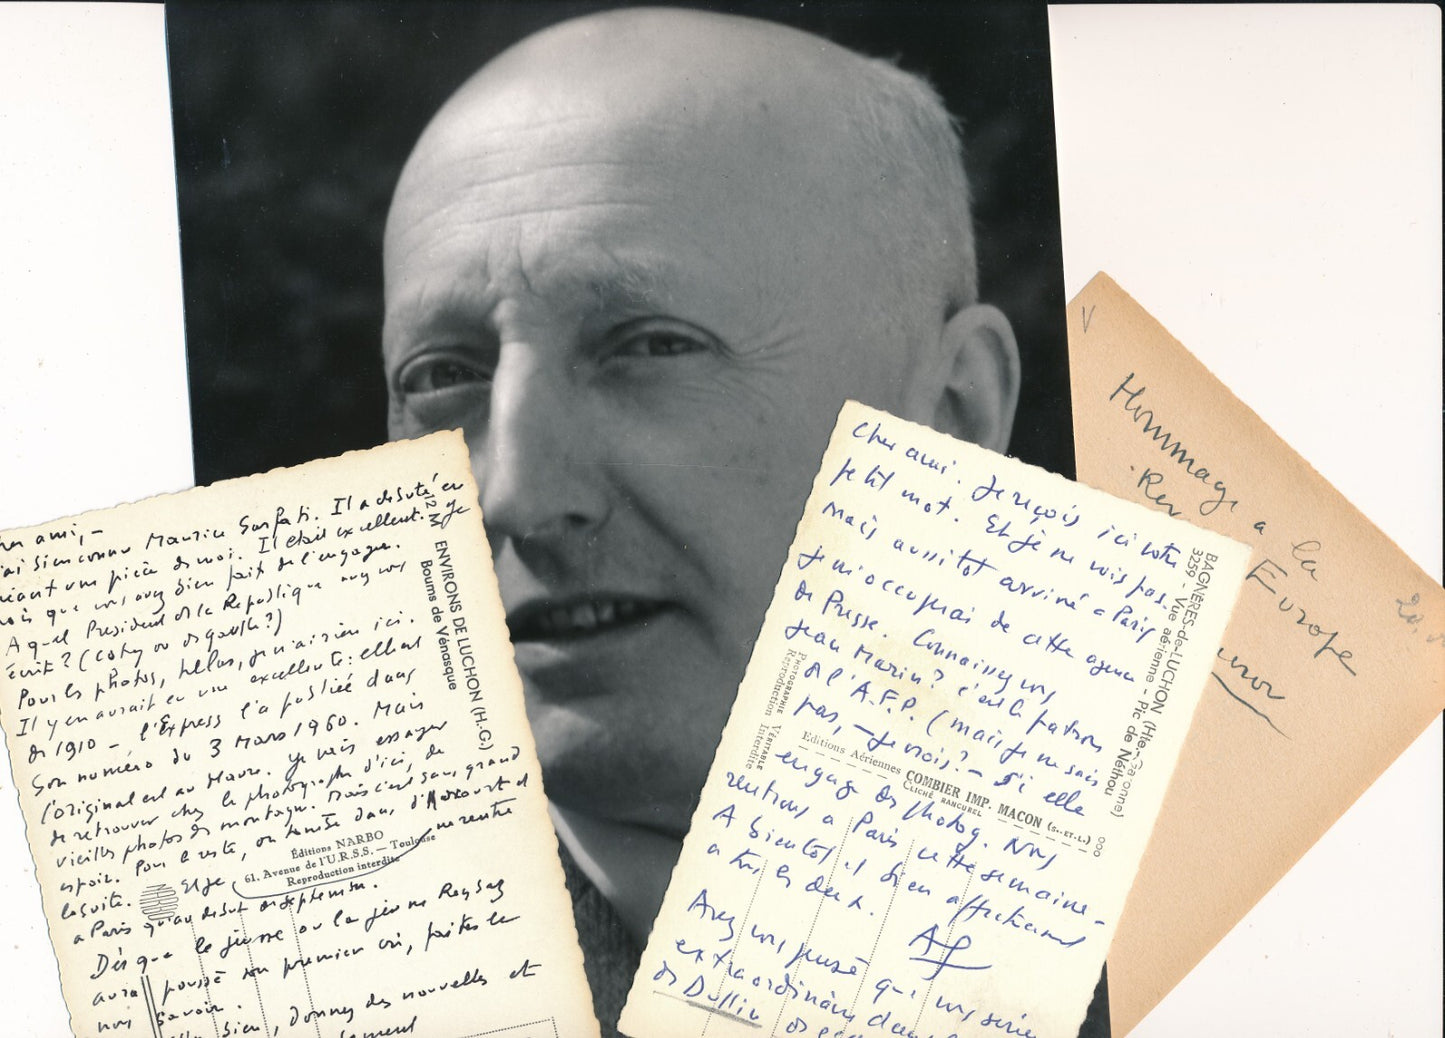 cher ami, -
connu Maurice Sarfati. Il a débuté en
une pièce de moi. Il était excellent. Je
que vous avez bien fait de l'engager.
A quel Président de la République avez vous
écrit? (Coty ou de gaulle?)
Pour les photos, hélas, je n'ai rien ici.
Il y en aurait eu une excellente: elle est
de 1910 - l'Express l'a publiée dans
Son numéro du 3 Mars 1960. Mais
l'original est au Havre. Je vais essayer
de retrouver chez le photographe d'ici, de
vieilles photos de montagne. Mais c'est sans grand
espoir. Pour le reste, on
la suite. Et je ne rentre
à Paris qu'au début de septembre.
Dès que le jeune ou la jeune
aura poussé son premier cri, faites le
nous savoir.
bien, donnez des nouvelles et
12 M ENVIRONS DE LUCHON (H.-G.)
Boums de Vénasque
Éditions NARBO
61, Avenue de l'U.R.S.S. — Toulouse
Reproduction interdite
NARBO
Cher ami. Je reçois ici votre
petit mot. Et je ne vois pas.
Mais aussitôt arrivé à Paris
je m'occuperai de cette agence
de Presse. Connaissez vous
Jean Marin? c'est le patron
de l'A.F.P. (mais je ne sais
pas, - je crois? - si elle
engage des photog. Nous
rentrons à Paris cette semaine -
A bientôt et bien affectueusement
à tous les deux.
Avez vous pensé que
extraordinaire dans
de Dullin
BAGNÈRES-de-LUCHON (Hte-Garonne)
3259 - Vue aérienne - Pic de Néthou
PHOTOGRAPHIE VÉRITABLE
Reproduction Interdite
Editions Aériennes COMBIER IMP. MACON (S.-ET-L.)
CLICHÉ RANCUREL
Hommage à la
Europe